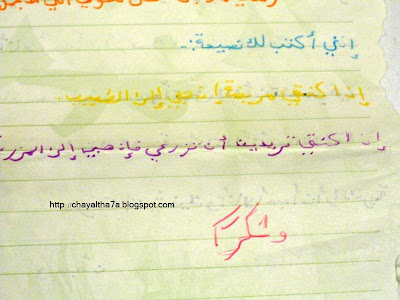 إنني أكتب لك نصيحة:-
إذا كنتي مريضة إذهبي إلى الطبيب.
إذا كنتي تريدين أن تزرعي فإذهبي إلى المزر
http://chayaltha7a.blogspot.com
وشكراً